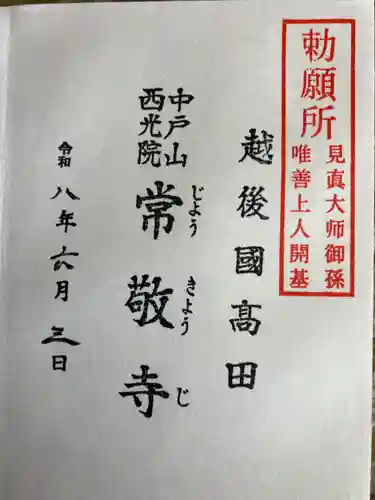 勅願所
見真大师御孫
唯善上人開基
越後國高田
中戸山
西光院
常敬寺
じょうきょうじ
令和八年六月三日